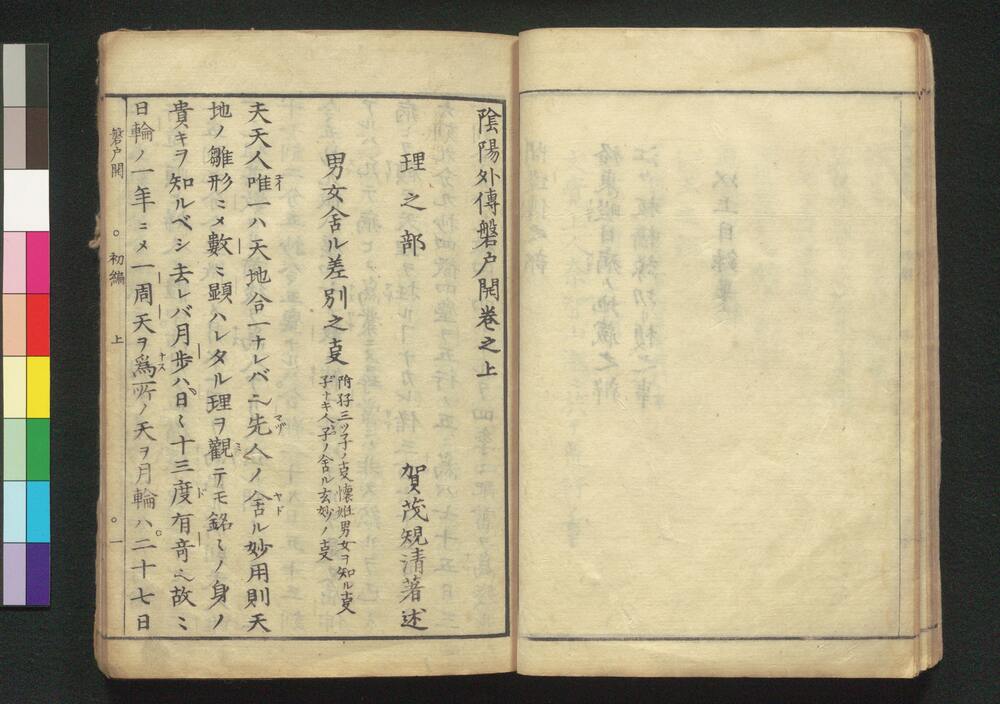 陰陽外傳磐戸開卷之上
理之部
賀茂規清著述
男女舍ル差別之㕝
附孖三ツ子ノ㕝懷姙男女ヲ知ル㕝
子ナキ人子ノ舍ル玄妙ノ㕝
夫天人唯一ハ天地合一ナレバ先人ノ舍ル妙用則天
地ノ雛形ニメ數ニ顯ハレタル理ヲ觀テモ銘〻ノ身ノ
貴キヲ知ルベシ去レバ月歩ハ日〻十三度有竒故ニ
日輪ノ一年ニメ一周天ヲ爲所ノ天ヲ月輪ハ二十七日
磐戸開 ○初編 上 ○一